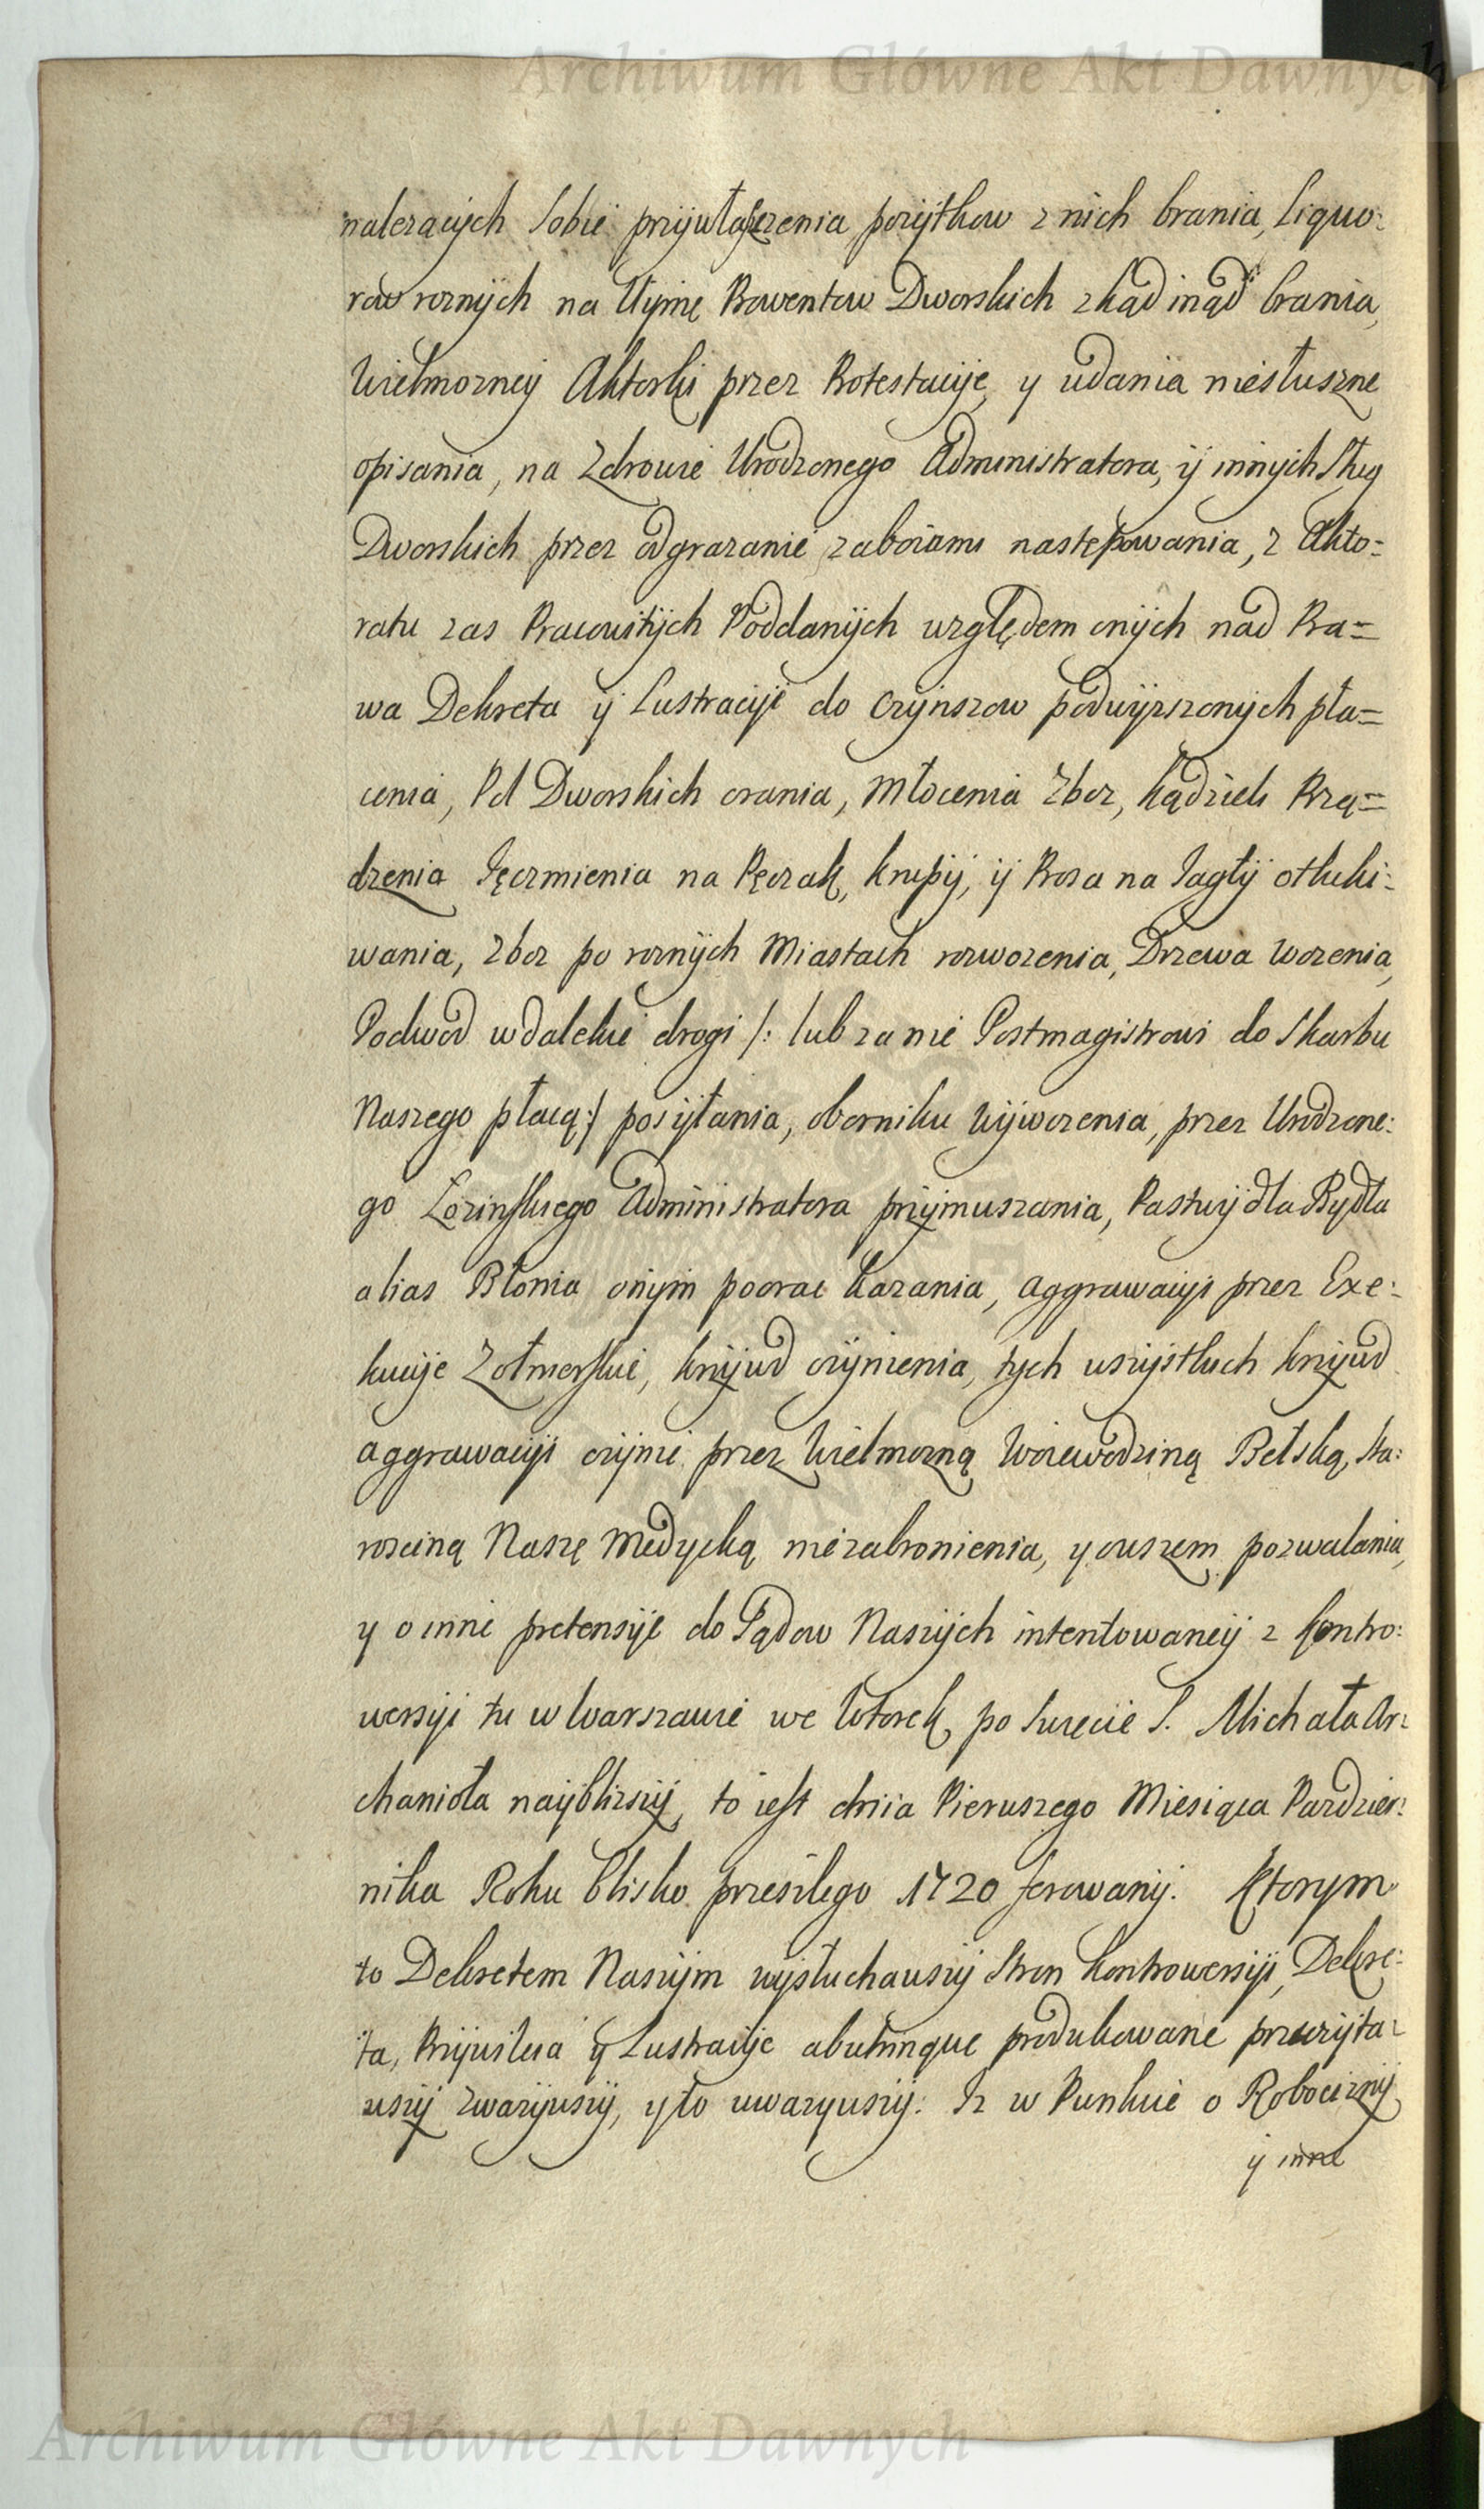 Archiwum Główne Akt Dawnych
należących sobie przywłaszczenia, pożytkow z nich brania, Liquo:
row roznych na Uymę Prowentow Dworskich zkąd inąd brania,
Wielmozney Aktorki przez Protestacyje, y udania niesłuszne
opisania, na Zdrowie Urodzonego Administratora, ÿ innych Sług
Dworskich przez odgrazanie zaboiami następowania, z Akto=
ratu zas Pracowitÿch Poddanÿch względem onÿch nad Pra=
wa Dekreta ÿ Lustracÿje do Czÿnszow podwÿzszonÿch pła=
cenia, Pol Dworskich orania, Młocenia Zboz, kądzieli Przę=
dzenia Jęczmienia na Pęczak, krupÿ, ÿ Prosa na Jagłÿ otłuki:
wania, zboz po roznÿch Miastach rozwozenia, Drzewa wozenia,
Podwod w dalekie drogi /: lub za nie Postmagistrowi do Skarbu
Naszego płacą :/ posÿłania, oborniku wÿwozenia, przez Urodzone:
go Łozinskiego Administratora przÿmuszania, Pastwÿ dla Bÿdła
alias Błonia onÿm poorac kazania, aggrawacÿi przez Exe:
kucÿje Zołnierskie, krzÿwd czÿnienia, tÿch wszÿstkich krzÿwd
aggrawacÿi czÿnic przez Wielmozną Woiewodziną Bełską, Sta:
rosciną Naszę Medycką niezabronienia, y owszem pozwalania,
y o inne pretensÿje do Sądow Naszÿch intentowaneÿ z kontro:
wersÿi tu w Warszawie we Wtorek po Swięcie S. Michała Ar:
chanioła naÿblizszÿ, to iest dnia Pierwszego Miesiąca Pazdzier:
nika Roku blisko przeszłego 1720 ferowanÿ. Ktorym
to Dekretem Naszÿm wÿsłuchawszÿ Stron kontrowersÿi, Dekre:
ta, Przÿwileia ÿ Lustracÿje abutrinque produkowane przeczÿta:
wszÿ zwazÿwszÿ, y to uwazywszÿ: Iz w Punkcie o Robociznÿ
ÿ inne
Archiwum Główne Akt Dawnych